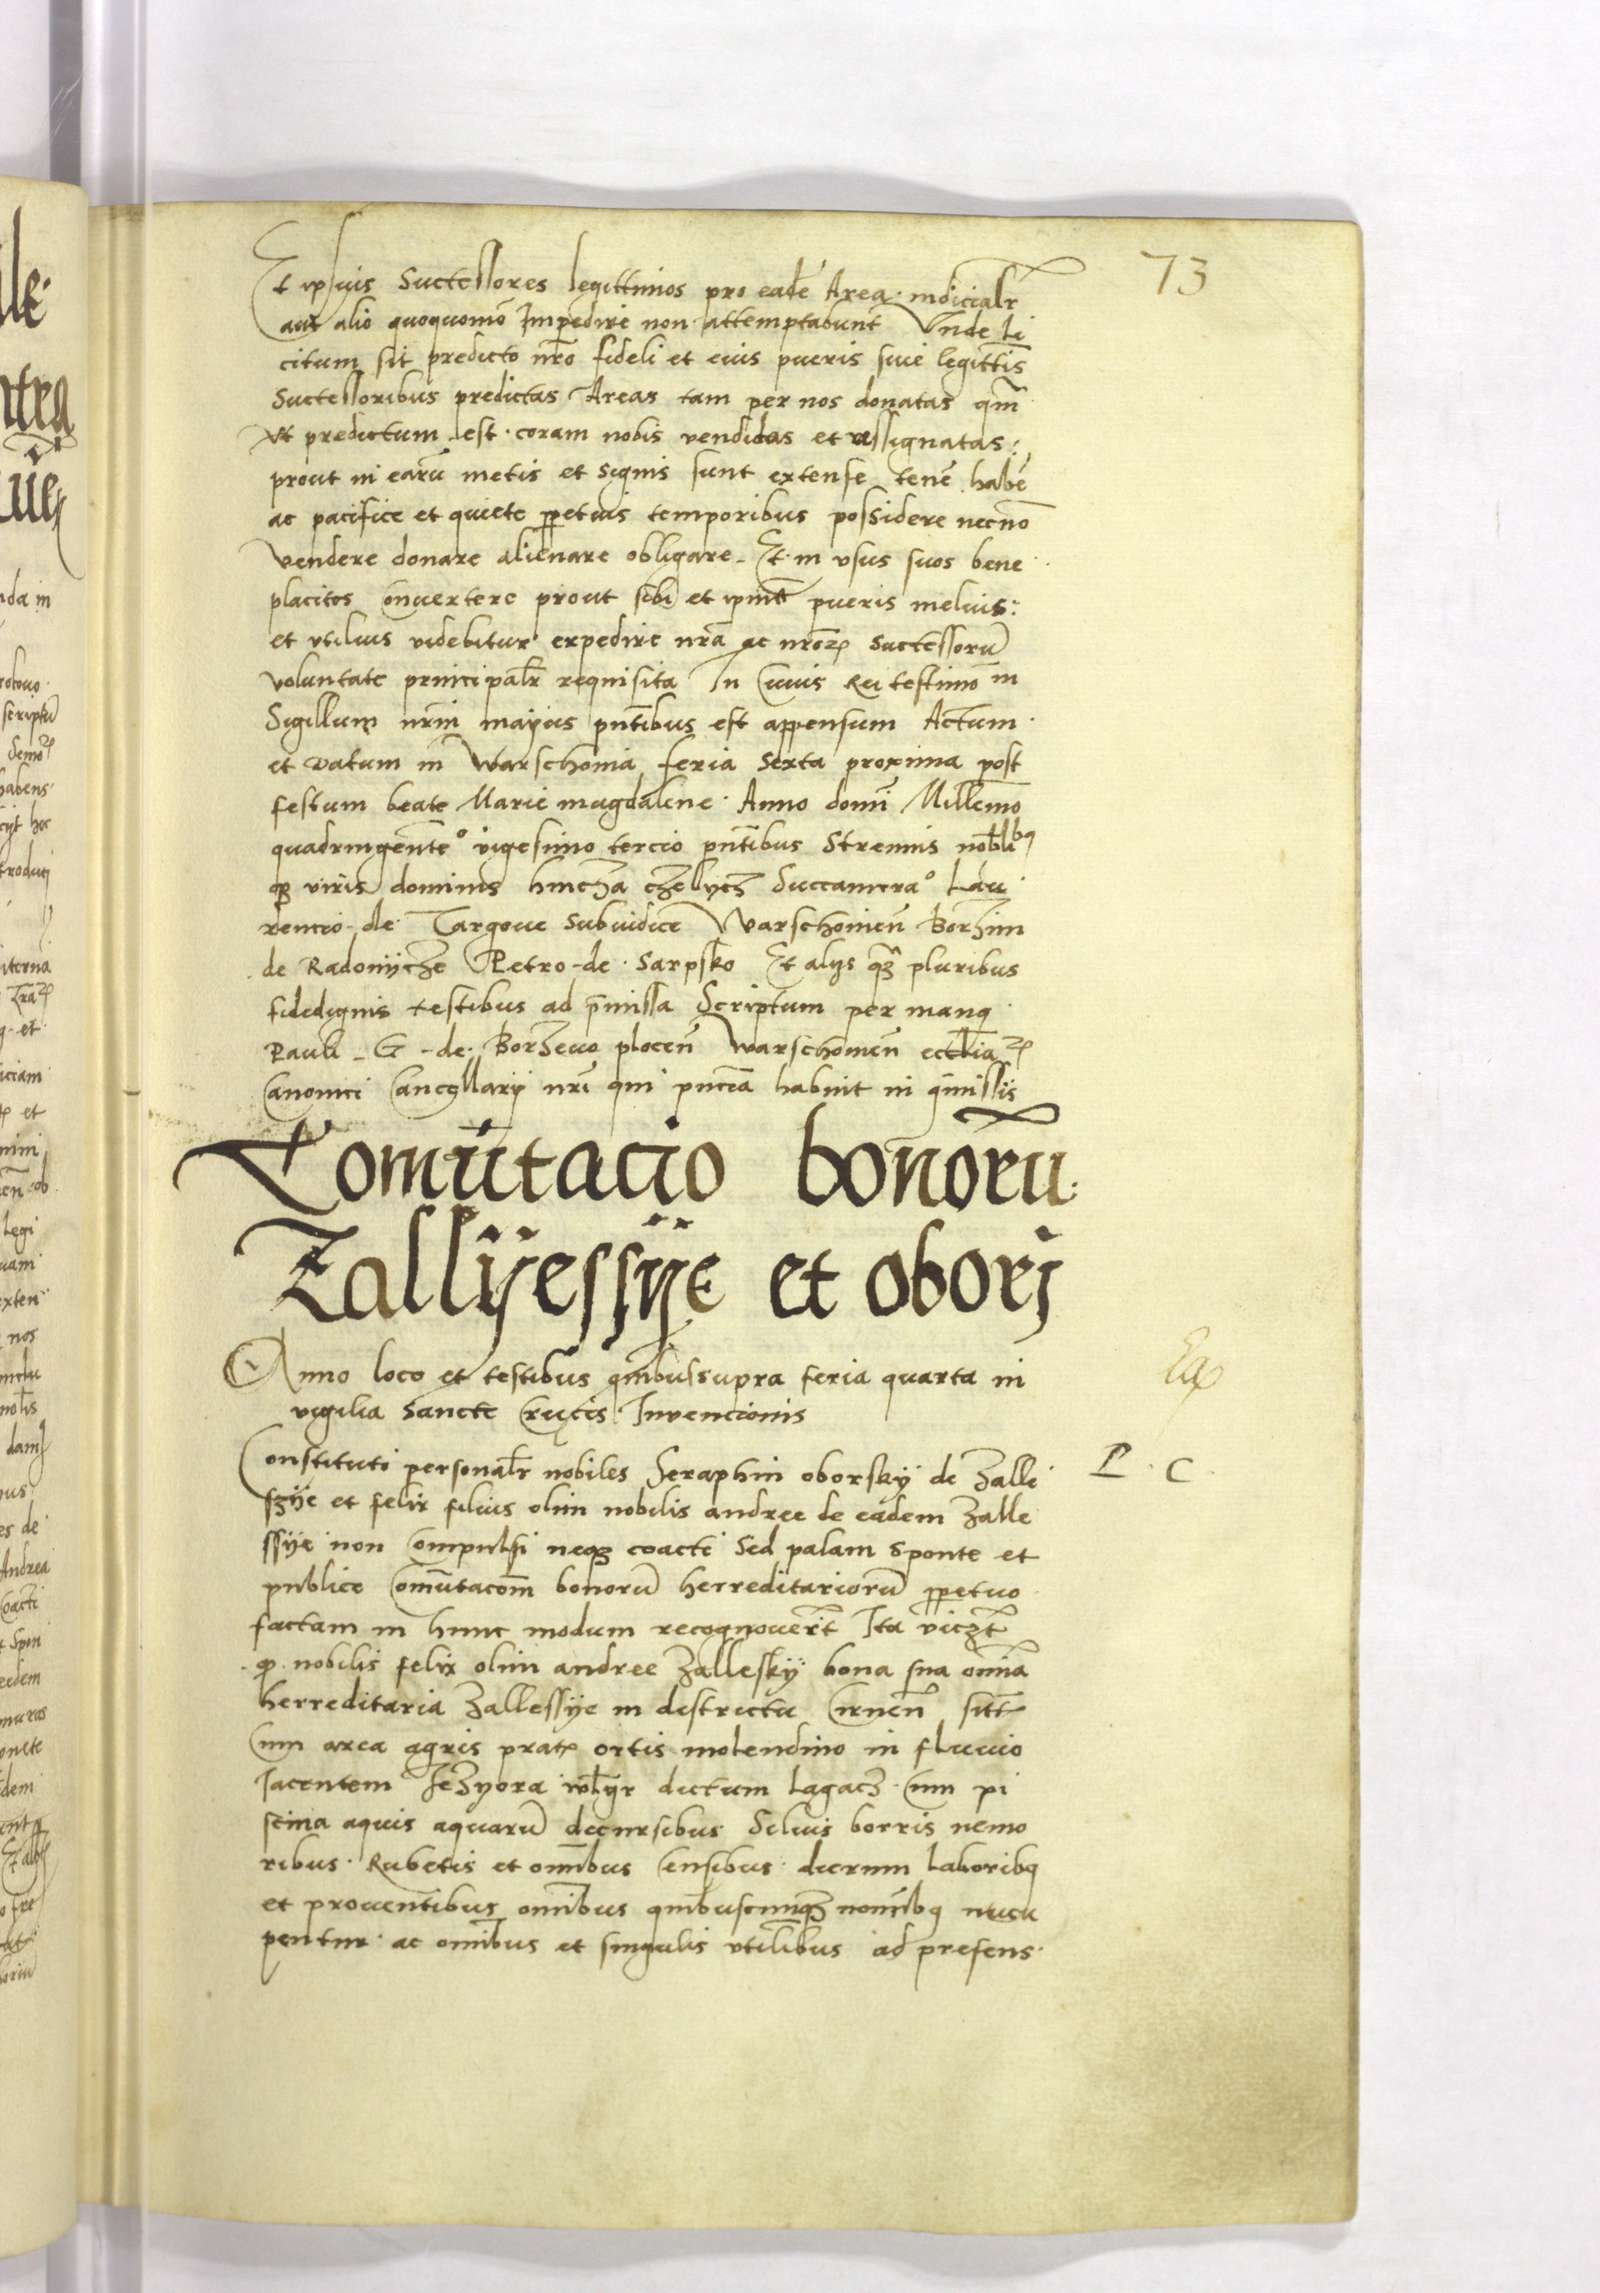 73
Et ipsius Successores legittimos pro eadē Area iudicialr̄
aut alio quoquomō Impedire non attemptabunt Vnde li
citum sit predicto nr̄o fideli et eius pueris siue legittīs
Successoribus predictas Areas tam per nos donatas qm̄
vt predictum est coram nobis vendidas et assignatas
prout in earū metis et signis sunt extense tenē habē
ac pacifice et quiete ꝑpetuis temporibus possidere necnō
vendere donare alienare obligare Et in vsus suos bene
placitos conuertere prout sibi et pueris melius
et vtilius videbitur expedire nr̄a ac nr̄oꝝ Successorū
voluntate principalr̄ requisita In cuius Rei testimō m
Sigillum nr̄m maius pn̄tibus est appensum Actum
et Datum in Warschouia feria Sexta proxima post
festum beate Marie magdalene Anno domi Millemo
quadringente° vigesimo tercio pn̄tibus Strenuis nobilibꝫ
qꝫ viris dominis hinczha czelycz Succamera° Lau
rencio de Targoue Subiudice Warschouien̄ Borzim
de Radonycze Petro de Sarpsko Et alijs qꝫ pluribus
fidedignis testibus ad p̄missa Scriptum per manꝫ
Pauli G de Borzewo plocen̄ Warschouien̄ eccl̄iaꝝ
Canonici Cancellarij nr̄i qui pn̄cia habuit in p̄missis
Comūtacio bonorū
Zallyessye et oborj
Anno loco et testibus quibus supra feria quarta in
vigilia Sancte Crucis Invencionis
Constituti personalr̄ nobiles Seraphin oborsky de Zalle
L C
szye et felix filius olim nobilis andree de eadem Zalle
ssye non compulsi neqꝫ coacti Sed palam Sponte et
publice comūtacom̄ bonorū herreditariorū ꝑpetuo
factam in hunc modum recognouerūt Ita viczt
ꝙ nobilis felix olim andree Zallesky bona sua omnia
herreditaria Zallessye in districtu Cirnen̄ sitt
Cum area agris prat ortis molendino in fluuio
Iacentem Jezyora wlgr dictum Lagacz cum pi
scina aquis aquarū decursibus Siluis borris nemo
ribus Rubetis et om̄ibus Censibus dierum laboribꝫ
et prouentibus om̄ibus quibuscunqꝫ nominibꝫ nucu
pentur ac om̄ibus et singulis vtilibus ad presens